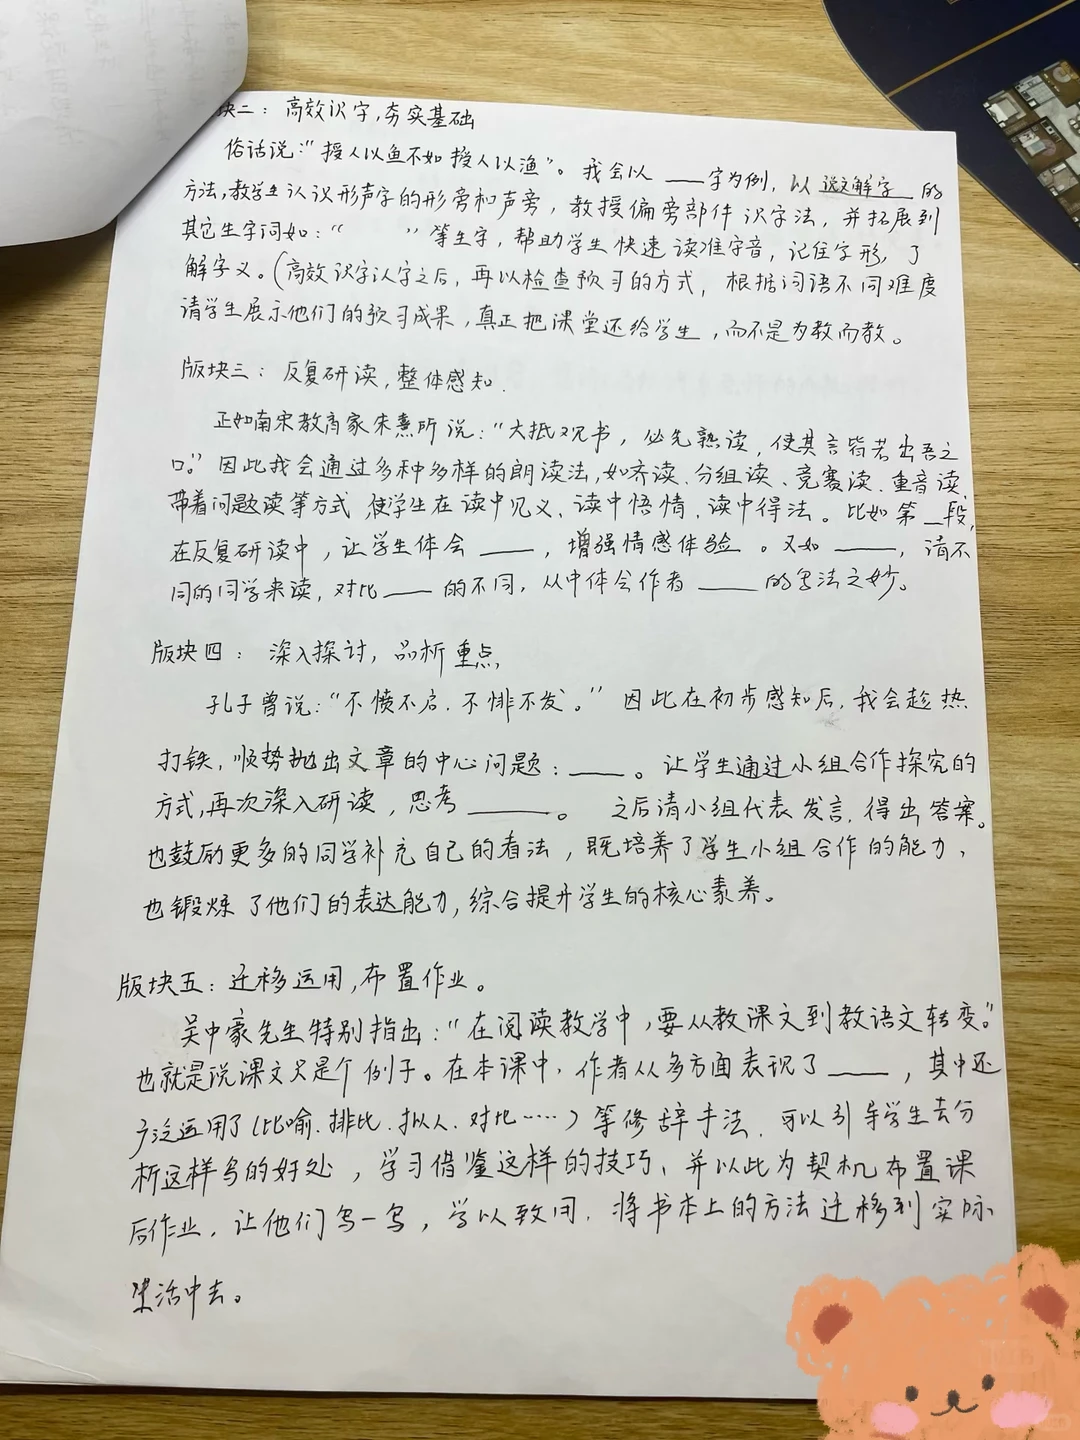 块二：高效识字，夯实基础
俗话说：“授人以鱼不如授人以渔”。我会以 ___字为例，以 说文解字 的
方法，教学生认识形声字的形旁和声旁，教授偏旁部件识字法，并拓展到
其它生字词如：“      ”等生字，帮助学生快速读准字音，记住字形，了
解字义。（高效识字认字之后，再以检查预习的方式，根据词语不同难度
请学生展示他们的预习成果，真正把课堂还给学生，而不是为教而教。
版块三：反复研读，整体感知．
正如南宋教育家朱熹所说：“大抵观书，必先熟读，使其言皆若出吾之
口。”因此我会通过多种多样的朗读法，如齐读、分组读、竞赛读、重音读、
带着问题读等方式 使学生在读中见义、读中悟情、读中得法。比如第__段，
在反复研读中，让学生体会 ____，增强情感体验。又如 ____，请不
同的同学来读，对比____的不同，从中体会作者 ____的写法之妙。
版块四：深入探讨，品析重点
孔子曾说：“不愤不启．不悱不发。”因此在初步感知后，我会趁热
打铁，顺势抛出文章的中心问题：____。让学生通过小组合作探究的
方式，再次深入研读，思考 ______。之后请小组代表发言，得出答案。
也鼓励更多的同学补充自己的看法，既培养了学生小组合作的能力、
也锻炼了他们的表达能力，综合提升学生的核心素养。
版块五：迁移运用，布置作业。
吴中豪先生特别指出：“在阅读教学中，要从教课文到教语文转变。”
也就是说课文只是个例子。在本课中，作者从多方面表现了____，其中还
广泛运用了（比喻．排比．拟人．对比……）等修辞手法．可以引导学生去分
析这样写的好处，学习借鉴这样的技巧、并以此为契机布置课
后作业，让他们写一写，学以致用．将书本上的方法迁移到实际
生活中去。